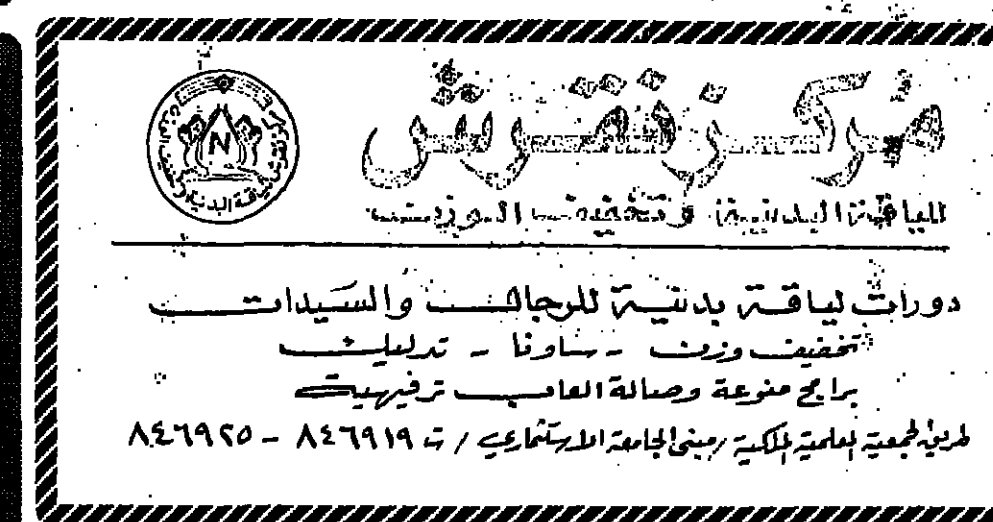 مركز نقرش
للياقة البدنية وتخفيف الوزن
دورات لياقة بدنية للرجال والسيدات
تخفيف وزن - ساونا - تدليك
برامج منوعة وصالة العاب ترفيهية
طريق الجمعية العلمية الملكية / مبنى الجامعة الاستثماري / ت ٨٤٦٩١٩ - ٨٤٦٩٢٥
N